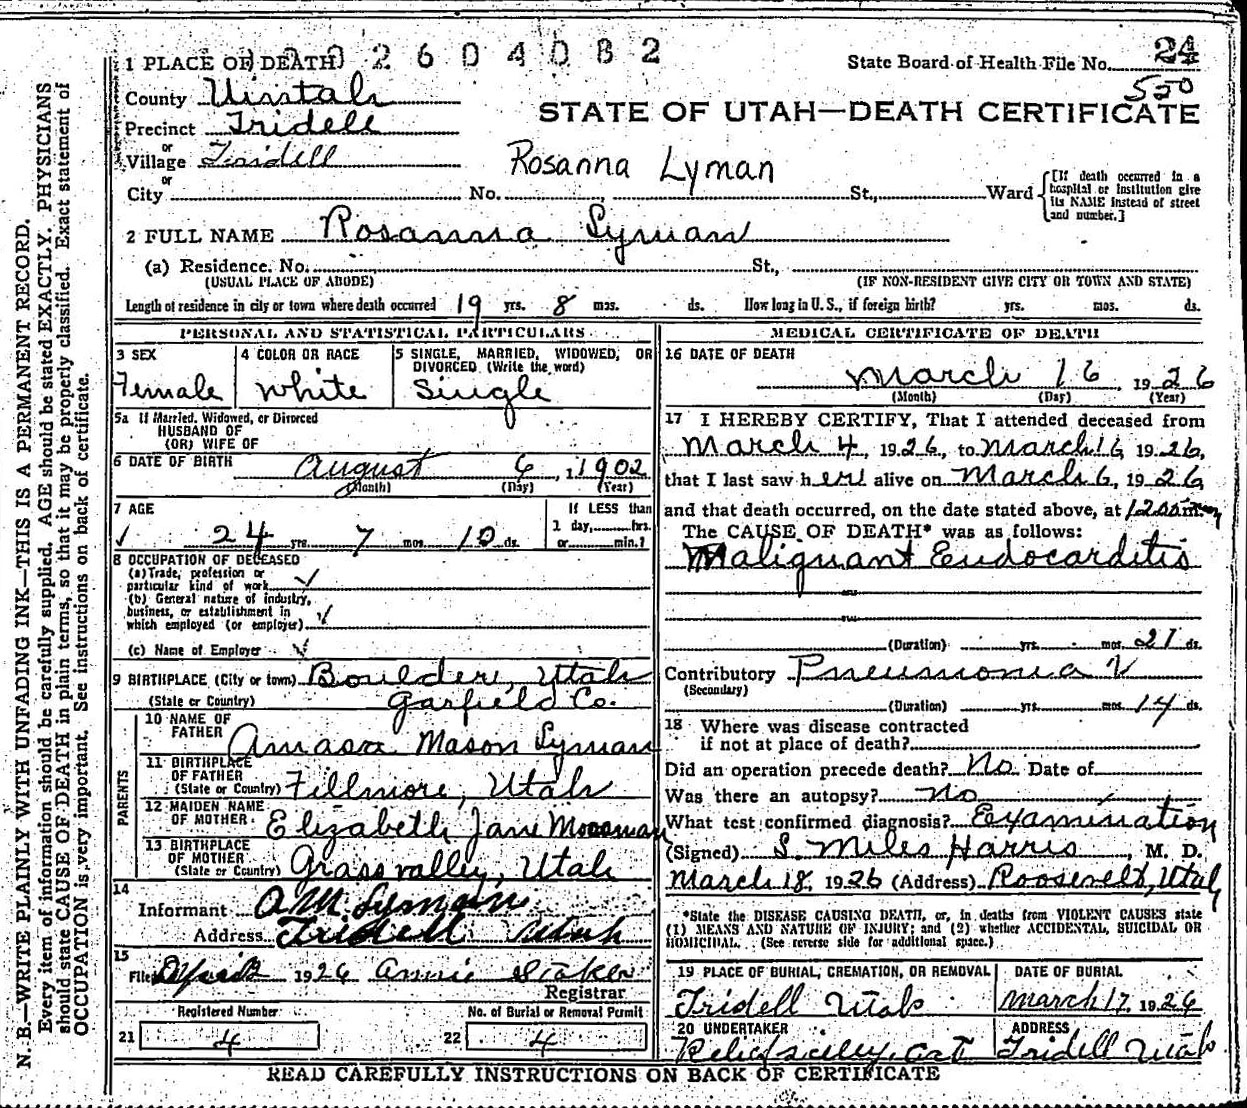 N. B.—WRITE PLAINLY WITH UNFADING INK—THIS IS A PERMANENT RECORD.
Every item of information should be carefully supplied. AGE should be stated EXACTLY. PHYSICIANS
should state CAUSE OF DEATH in plain terms, so that it may be properly classified. Exact statement of
OCCUPATION is very important. See instructions on back of certificate.
2604082
1 PLACE OF DEATH
State Board of Health File No. 24
550
County Uintah
STATE OF UTAH—DEATH CERTIFICATE
Precinct Tridell
or
Village Tridell
Rosanna Lyman
or
City No. St., Ward
[If death occurred in a
hospital or institution give
its NAME instead of street
and number.]
2 FULL NAME Rosanna Lyman
(a) Residence. No. St.,
(USUAL PLACE OF ABODE) (IF NON-RESIDENT GIVE CITY OR TOWN AND STATE)
Length of residence in city or town where death occurred 19 yrs. 8 mos. ds. How long in U. S., if foreign birth? yrs. mos. ds.
PERSONAL AND STATISTICAL PARTICULARS
3 SEX
Female
4 COLOR OR RACE
White
5 SINGLE, MARRIED, WIDOWED, OR
DIVORCED (Write the word)
Single
5a If Married, Widowed, or Divorced
HUSBAND OF
(OR) WIFE OF
6 DATE OF BIRTH August 6, 1902
(Month) (Day) (Year)
7 AGE
24 yrs. 7 mos. 10 ds.
If LESS than
1 day, hrs.
or min.?
8 OCCUPATION OF DECEASED
(a) Trade, profession or
particular kind of work
(b) General nature of industry,
business, or establishment in
which employed (or employer)
(c) Name of Employer
9 BIRTHPLACE (City or town) Boulder, Utah
(State or Country) Garfield Co.
PARENTS
10 NAME OF
FATHER Amasa Mason Lyman
11 BIRTHPLACE
OF FATHER
(State or Country) Fillmore, Utah
12 MAIDEN NAME
OF MOTHER Elizabeth Jane Moosman
13 BIRTHPLACE
OF MOTHER
(State or Country) Grass valley, Utah
14
Informant A M Lyman
Address Tridell Utah
15
Filed 1926 Annie Staker
Registrar
Registered Number
21 4
No. of Burial or Removal Permit
22 4
MEDICAL CERTIFICATE OF DEATH
16 DATE OF DEATH
March 16, 1926
(Month) (Day) (Year)
17 I HEREBY CERTIFY, That I attended deceased from
March 4, 1926, to March 16 1926,
that I last saw her alive on March 6, 1926
and that death occurred, on the date stated above, at
The CAUSE OF DEATH* was as follows:
Malignant Endocarditis
(Duration) yrs. mos. 21 ds.
Contributory Pneumonia
(Secondary)
(Duration) yrs. mos. 14 ds.
18 Where was disease contracted
if not at place of death?
Did an operation precede death? No Date of
Was there an autopsy? no
What test confirmed diagnosis? Examination
(Signed) S. Miles Harris, M. D.
March 18, 1926 (Address) Roosevelt, Utah
*State the DISEASE CAUSING DEATH, or, in deaths from VIOLENT CAUSES state
(1) MEANS AND NATURE OF INJURY; and (2) whether ACCIDENTAL, SUICIDAL OR
HOMICIDAL. (See reverse side for additional space.)
19 PLACE OF BURIAL, CREMATION, OR REMOVAL
Tridell Utah
DATE OF BURIAL
March 17, 1926
20 UNDERTAKER
ADDRESS
Tridell Utah
READ CAREFULLY INSTRUCTIONS ON BACK OF CERTIFICATE